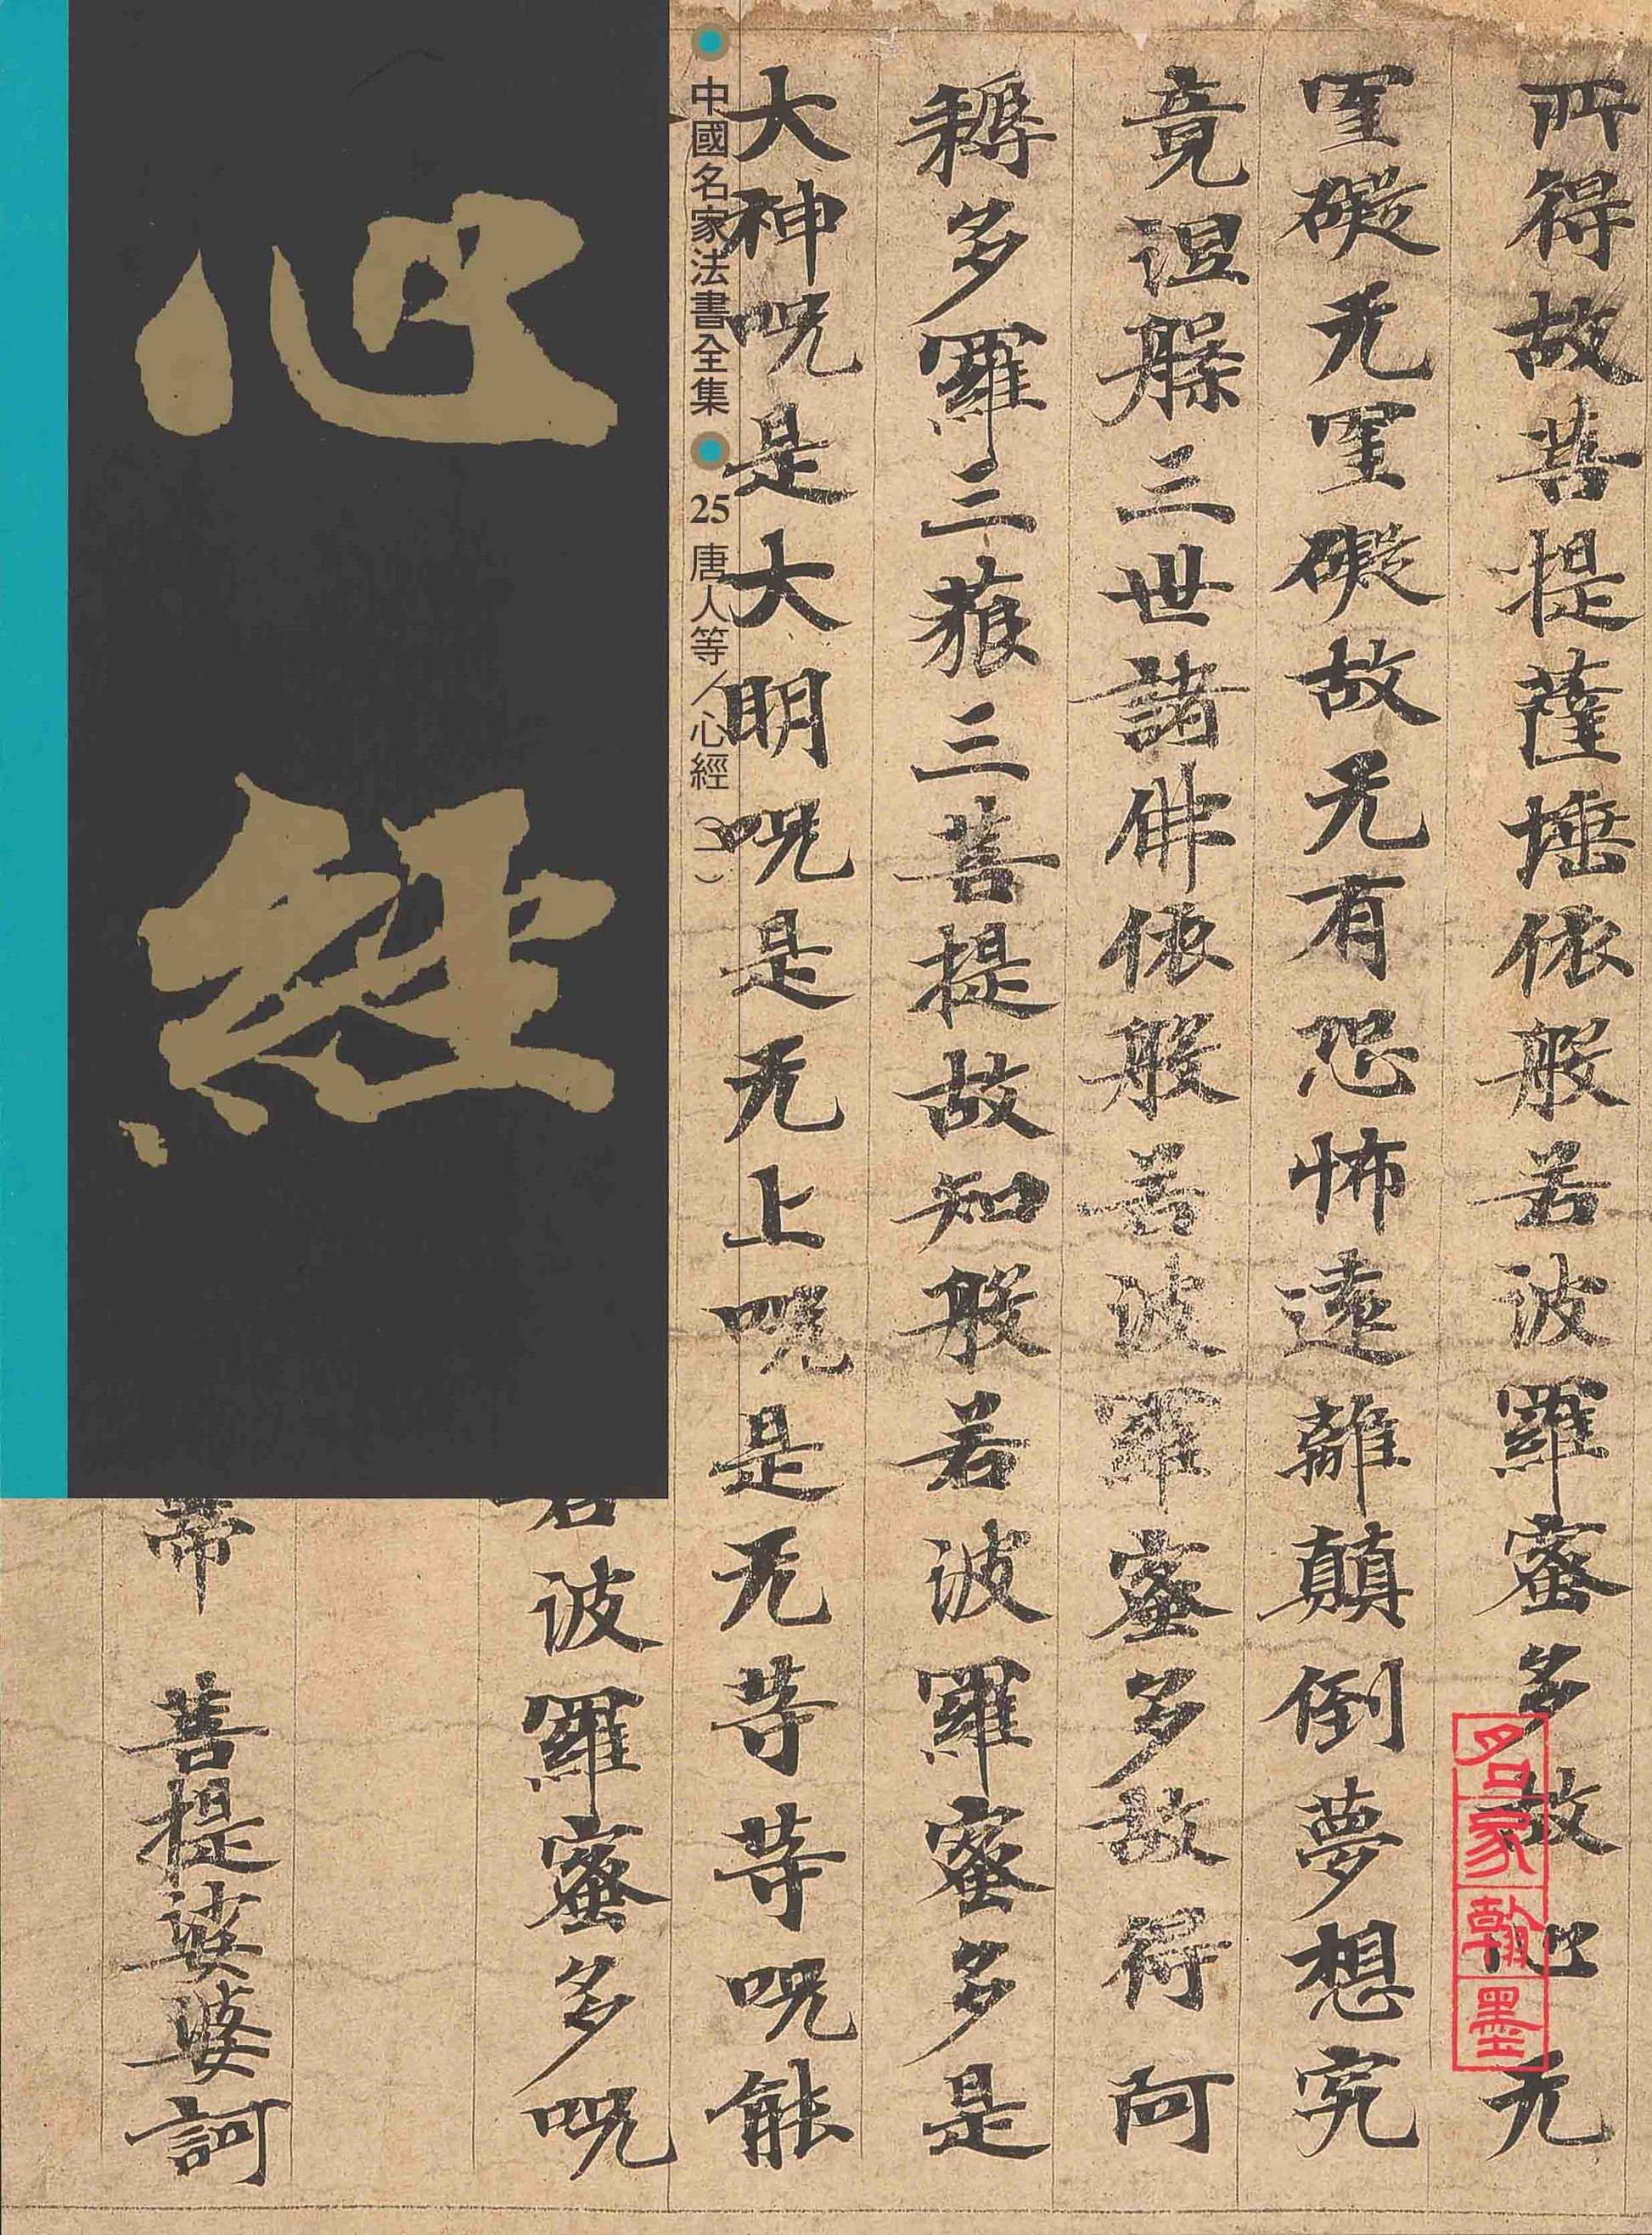 所得故菩提薩埵依般若波羅蜜多故心无
罣礙无罣礙故无有恐怖遠離顛倒夢想究
竟涅槃三世諸佛依般若波羅蜜多故得阿
耨多羅三藐三菩提故知般若波羅蜜多是
大神咒是大明咒是无上咒是无等等咒能
若波羅蜜多咒
帝 菩提娑婆訶
中國名家法書全集
25 唐人等/心經(一)
心經
名家翰墨